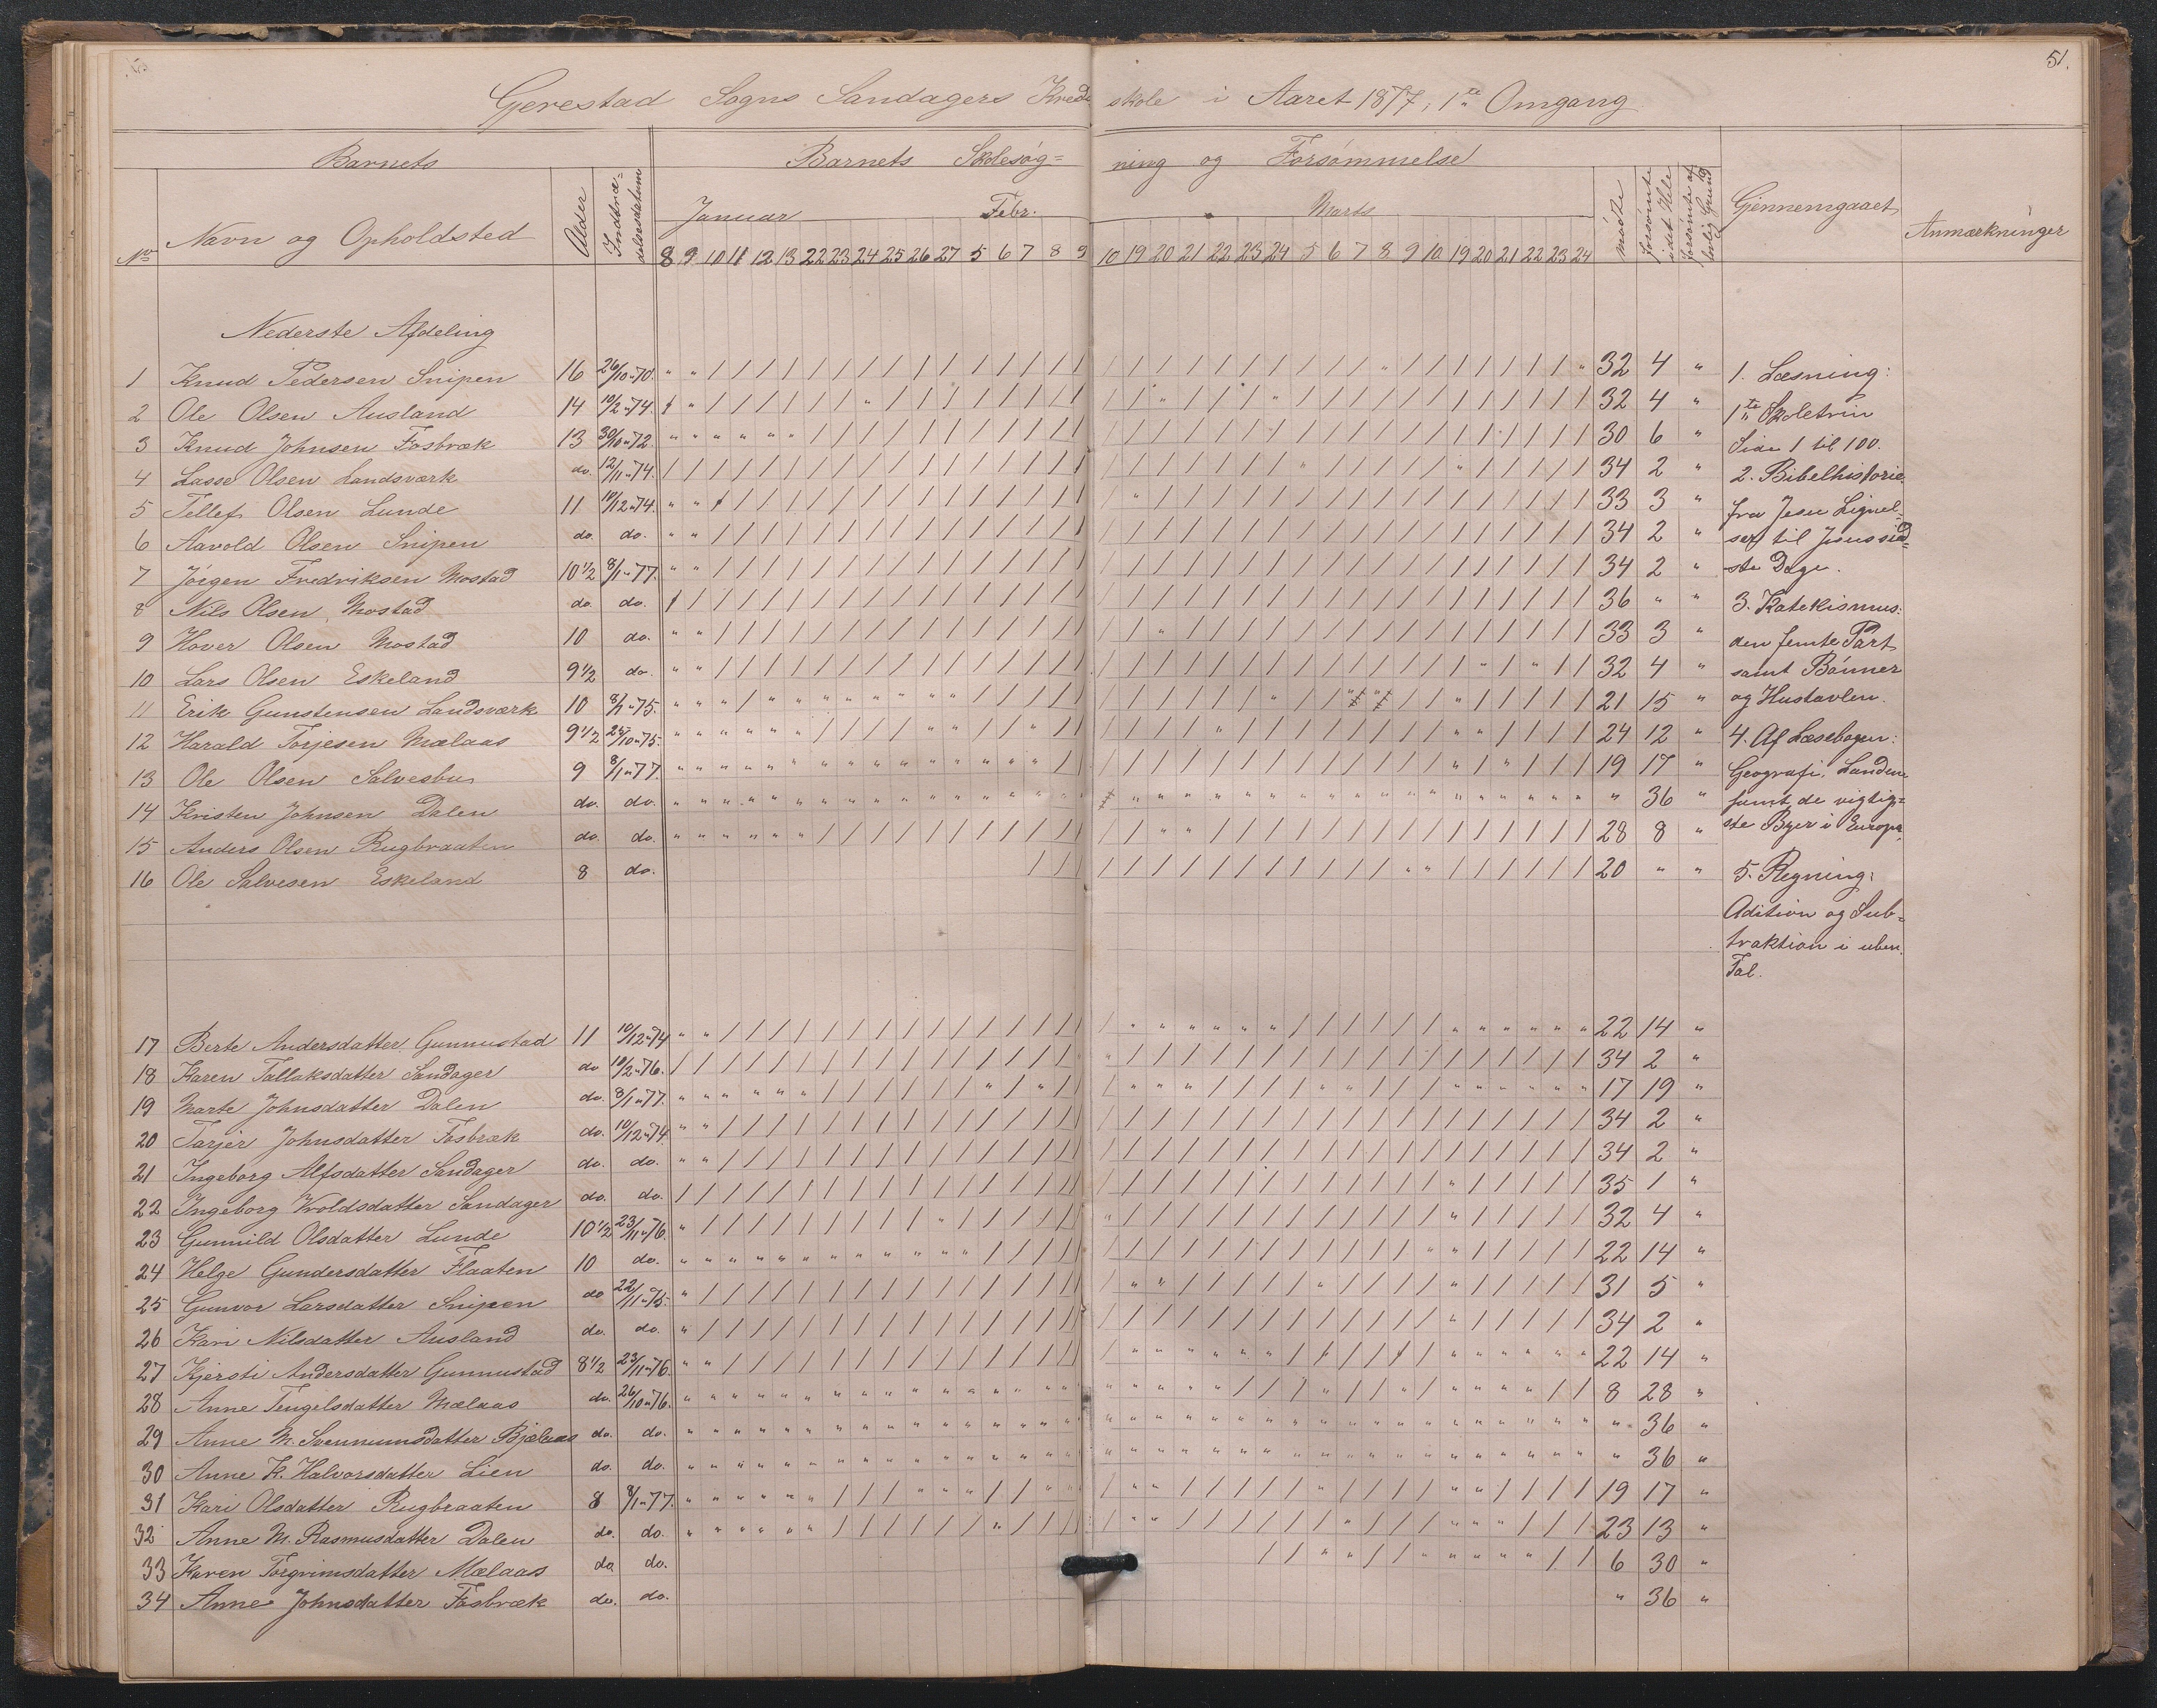 51.
Gerestad Sogns Sandagers Kreds skole i Aaret 1877, 1ste Omgang
Barnets
Barnets Skolesøg= ning og Forsømmelse
No Navn og Opholdsted Alder Indtræ= delsesdatum Januar Febr. Marts mødte forsømte i det Hele forsømte af lovlig Grund Gjennemgaaet Anmærkninger
8 9 10 11 12 13 22 23 24 25 26 27 5 6 7 8 9 10 19 20 21 22 23 24 5 6 7 8 9 10 19 20 21 22 23 24
Nederste Afdeling
1 Knud Pedersen Snipen 16 26/10 "70. 32 4 "
2 Ole Olsen Ausland 14 10/2 "74. 32 4 "
3 Knud Johnsen Fosbræk 13 30/10 "72. 30 6 "
4 Lasse Olsen Landsværk do. 12/11 "74. 34 2 "
5 Tellef Olsen Lunde 11 10/12 "74. 33 3 "
6 Aavold Olsen Snipen do. do. 34 2 "
7 Jörgen Fredriksen Mostad 10 1/2 8/1 "77. 34 2 "
8 Nils Olsen Mostad do. do. 36 " "
9 Hover Olsen Mostad 10 do. 33 3 "
10 Lars Olsen Eskeland 9 1/2 do. 32 4 "
11 Erik Gunstensen Landsværk 10 "75. 21 15 "
12 Harald Torjesen Mælaas 9 1/2 "75. 24 12 "
13 Ole Olsen Salvesbu 9 8/1 "77. 19 17 "
14 Kristen Johnsen Dalen do. do. " 36 "
15 Anders Olsen Rugbraaten do. do. 28 8 "
16 Ole Salvesen Eskeland 8 do. 20 " "
1. Læsning:
1ste Skoletrin
Side 1 til 100.
2. Bibelhistorie
fra Jesu Lignel=
ser til Jesus sid=
ste Dage.
3. Katekismus:
den femte Part
samt Bønner
og Hustavlen.
4. Af Læsebogen:
Geografi: Landene
samt de vigtig=
ste Byer i Europa.
5. Regning:
Adition og Sub=
traktion i uben.
Tal.
17 Berte Andersdatter Gunnustad 11 10/12 "74 22 14 "
18 Karen Tallaksdatter Sandager do 10/2 "76. 34 2 "
19 Marte Johnsdatter Dalen do. 8/1 "77. 17 19 "
20 Tarjer Johnsdatter Fosbræk do. 10/12 "74 34 2 "
21 Ingeborg Alfsdatter Sandager do. do. 34 2 "
22 Ingeborg Wroldsdatter Sandager do. do. 35 1 "
23 Gunnild Olsdatter Lunde 10 1/2 23/11 "76. 32 4 "
24 Helge Gundersdatter Flaaten 10 do. 22 14 "
25 Gunvor Larsdatter Snipen do 22/11 "75. 31 5 "
26 Kari Nilsdatter Ausland do. do. 34 2 "
27 Kjersti Andersdatter Gunnustad 8 1/2 23/11 "76. 22 14 "
28 Anne Tengelsdatter Mælaas do. 26/10 "76. 8 28 "
29 Anne M. Svennumsdatter Bjælaas do. do. " 36 "
30 Anne K. Halvorsdatter Lien do. do. " 36 "
31 Kari Olsdatter Rugbraaten 8 8/1 "77. 19 17 "
32 Anne M. Rasmusdatter Dalen do. do. 23 13 "
33 Karen Torgrimsdatter Mælaas do do. 6 30 "
34 Anne Johnsdatter Fosbræk do. do. " 36 "